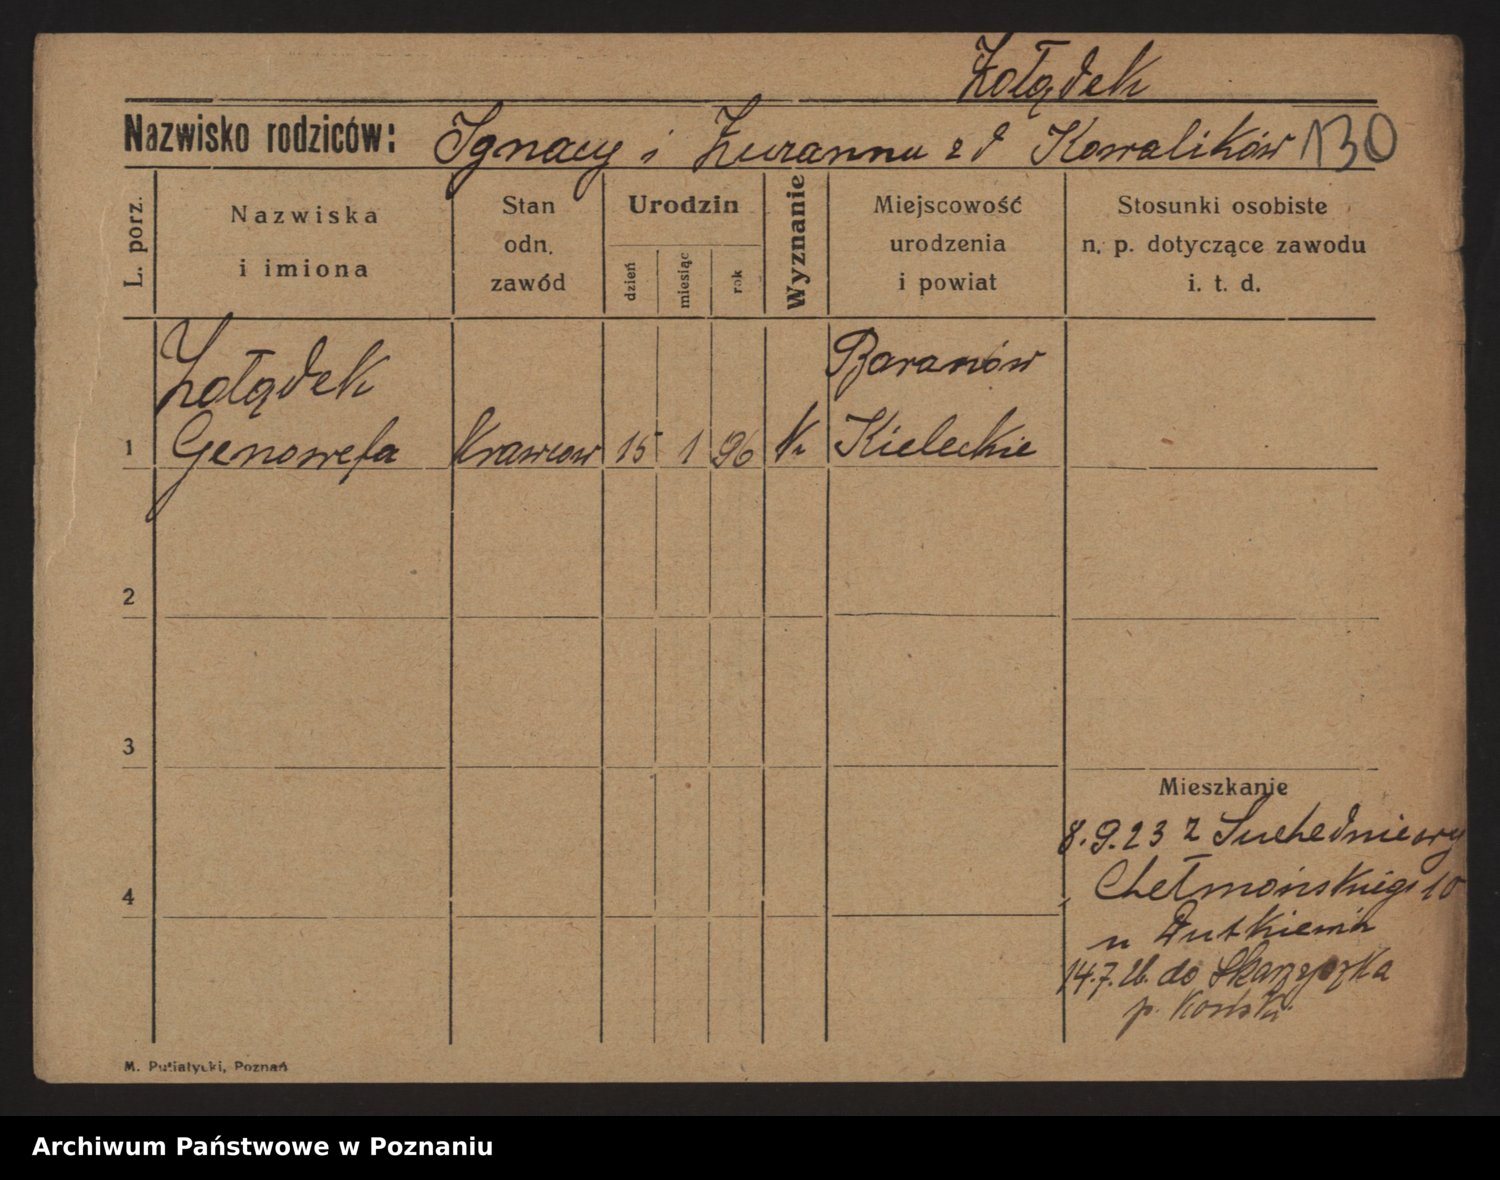 Żołądek
Nazwisko rodziców: Ignacy i Zuzanna z d Kowalików 130
L. porz.
Nazwiska
i imiona
Stan
odn.
zawód
Urodzin
dzień
miesiąc
rok
Wyznanie
Miejscowość
urodzenia
i powiat
Stosunki osobiste
n. p. dotyczące zawodu
i. t. d.
Żołądek Baranów
1 Genowefa Krawcow 15 1 96 Kieleckie
2
3
Mieszkanie
8.9.23 z Suchedniowy
Chełmońskiego 10
4
u Dutkiewicz
14.7.26. do Skarżyszka
p. Koński
M. Putiatycki, Poznań
Archiwum Państwowe w Poznaniu